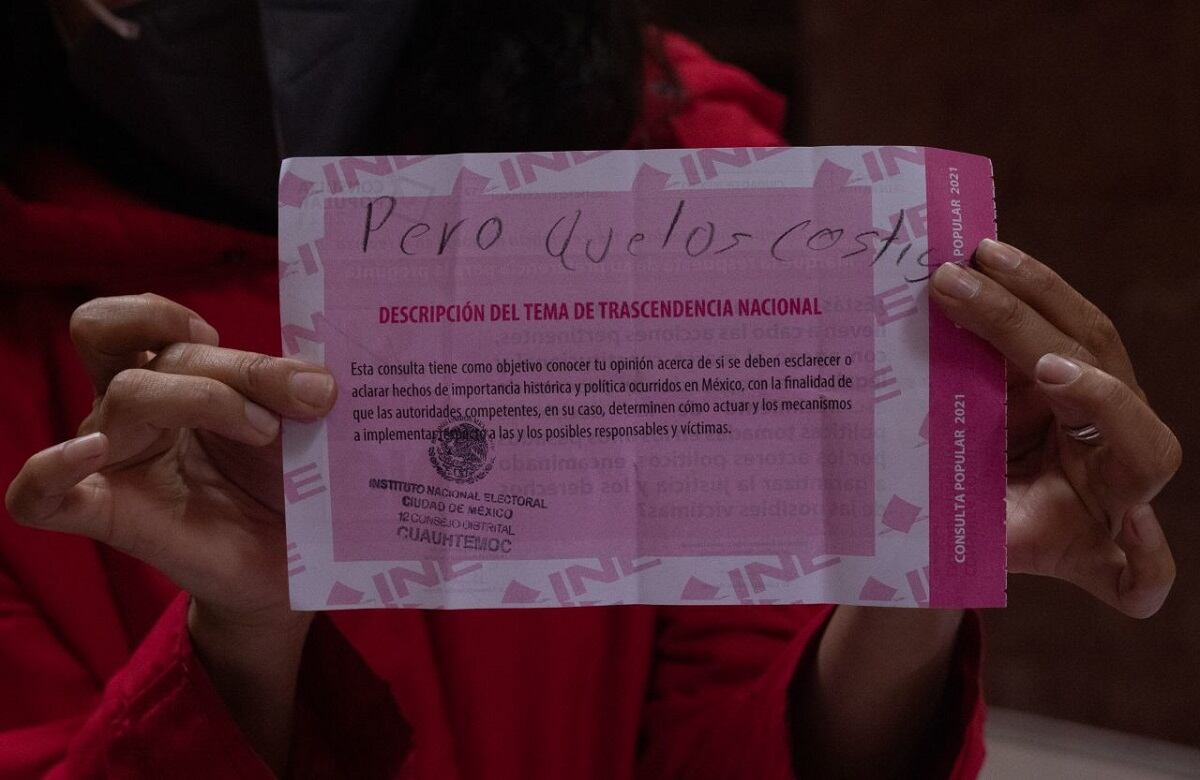 INE INE INE INE
Pero Que los costig
DESCRIPCIÓN DEL TEMA DE TRASCENDENCIA NACIONAL
Esta consulta tiene como objetivo conocer tu opinión acerca de si se deben esclarecer o
aclarar hechos de importancia histórica y política ocurridos en México, con la finalidad de
que las autoridades competentes, en su caso, determinen cómo actuar y los mecanismos
a implementar respecto a las y los posibles responsables y víctimas.
INSTITUTO NACIONAL ELECTORAL
CIUDAD DE MÉXICO
12 CONSEJO DISTRITAL
CUAUHTEMOC
INE INE INE
POPULAR 2021
CONSULTA POPULAR 2021